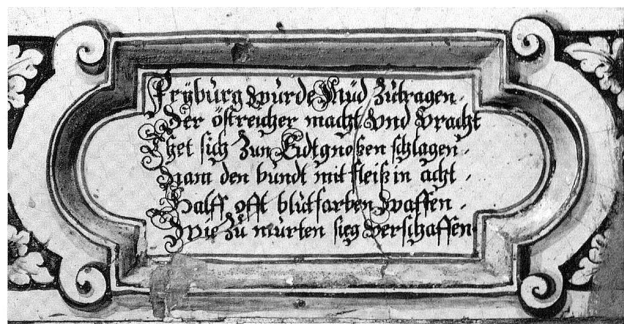 Fryburg wurde Müd Zutragen.
Der östreicher macht vnd pracht
Thet sich Zun Eidtgnoßen schlagen.
Nam den bundt mit fleiß in acht.
Halff offt blutfarben Waffen.
Wie Zu murten sieg verschaffen